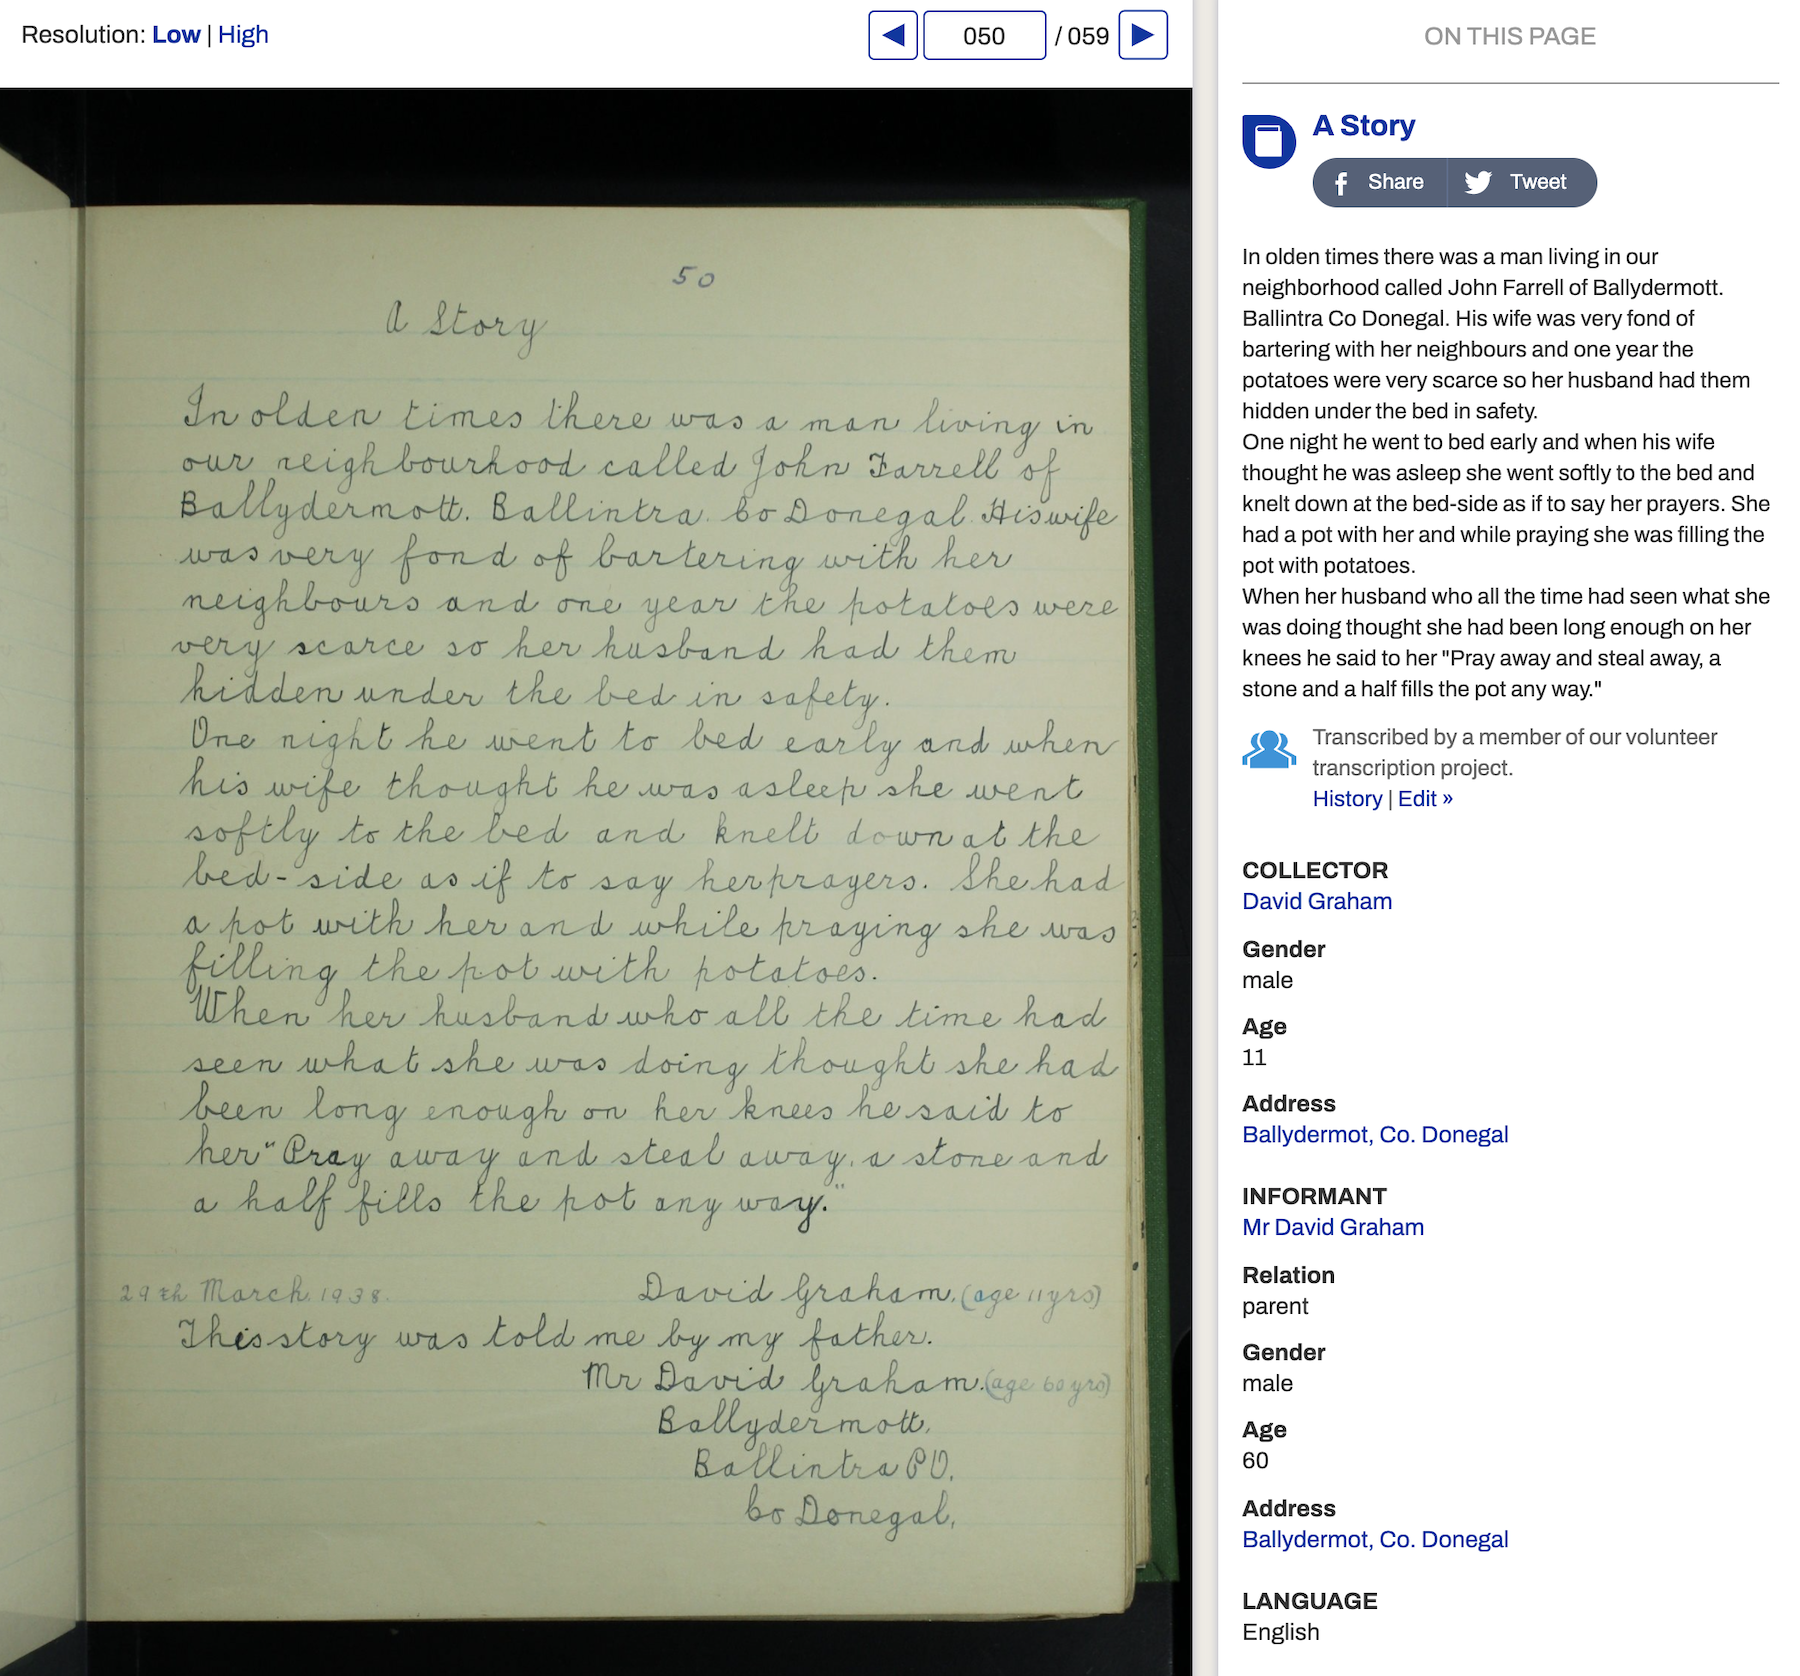 Resolution: Low | High
050 / 059
50
A Story
In olden times there was a man living in
our neighbourhood called John Farrell of
Ballydermott. Ballintra. Co Donegal. His wife
was very fond of bartering with her
neighbours and one year the potatoes were
very scarce so her husband had them
hidden under the bed in safety.
One night he went to bed early and when
his wife thought he was asleep she went
softly to the bed and knelt down at the
bed-side as if to say her prayers. She had
a pot with her and while praying she was
filling the pot with potatoes.
When her husband who all the time had
seen what she was doing thought she had
been long enough on her knees he said to
her "Pray away and steal away, a stone and
a half fills the pot any way."
29th March 1938.
David Graham. (age 11yrs)
This story was told me by my father.
Mr David Graham. (age 60 yrs)
Ballydermott.
Ballintra P.O.
Co Donegal.
ON THIS PAGE
A Story
Share Tweet
In olden times there was a man living in our
neighborhood called John Farrell of Ballydermott.
Ballintra Co Donegal. His wife was very fond of
bartering with her neighbours and one year the
potatoes were very scarce so her husband had them
hidden under the bed in safety.
One night he went to bed early and when his wife
thought he was asleep she went softly to the bed and
knelt down at the bed-side as if to say her prayers. She
had a pot with her and while praying she was filling the
pot with potatoes.
When her husband who all the time had seen what she
was doing thought she had been long enough on her
knees he said to her "Pray away and steal away, a
stone and a half fills the pot any way."
Transcribed by a member of our volunteer
transcription project.
History | Edit »
COLLECTOR
David Graham
Gender
male
Age
11
Address
Ballydermot, Co. Donegal
INFORMANT
Mr David Graham
Relation
parent
Gender
male
Age
60
Address
Ballydermot, Co. Donegal
LANGUAGE
English